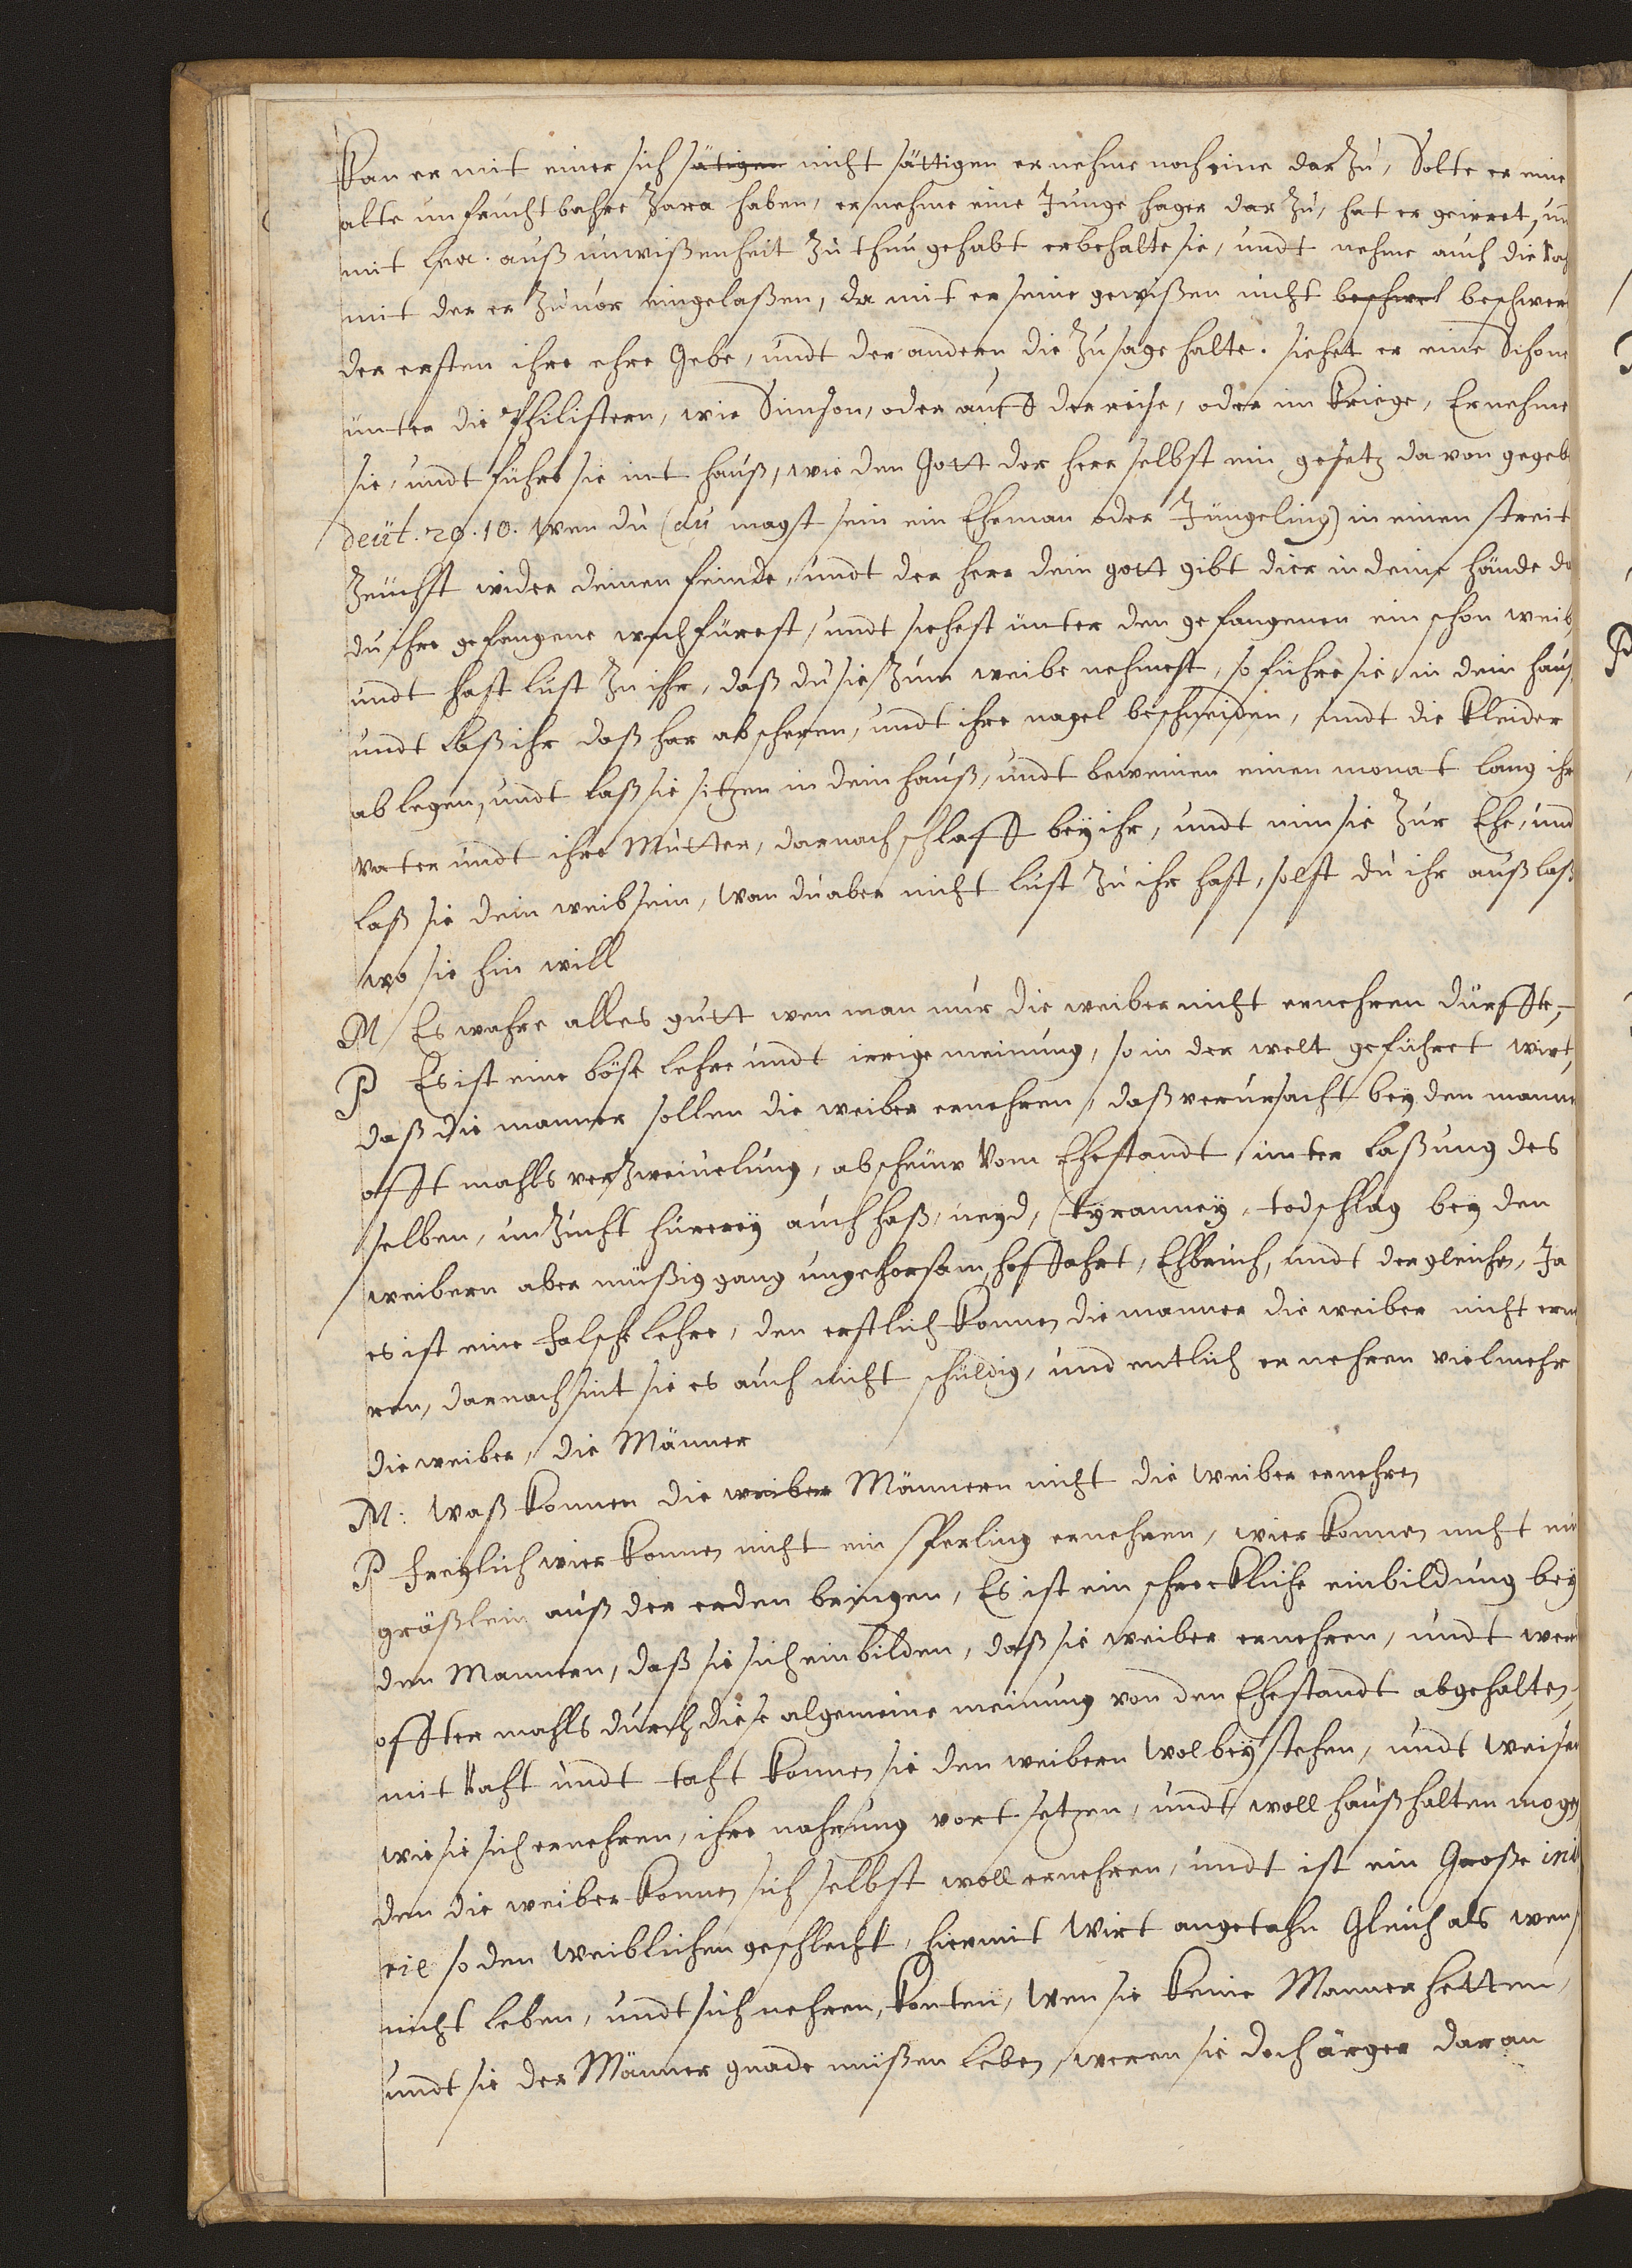 Kan er mit einer sich sätigen nicht sättigen er nehme noch eine dar zu, Solte er eine
alte unfruchtbahre Zara haben, er nehme eine Junge hager dar zu, hat er geirret, un
mit Lea. auß unwißenheit zu thun gehabt er behalte sie, undt nehme auch die
mit der er zuvor eingelaßen, da mit er seine gewißen nicht beschwel beschwer
der ersten ihre ehre Gebe, undt der andern die zusage halte. siehet er eine Schone
unter die Philistern, wie Simson, oder auff der reise, oder im Kriege, Er nehme
sie, undt führe sie int hauß, wie den Gott der herr selbst ein gesetz da von gegeb
deut. 20. 10. Wen du (du magst sein ein Eheman oder Jüngeling) in einen streit
zeuchst wider deinen feinde, undt der herr dein gott gibt dier in deine hände da
du ihre gefangene wechfürest, undt siehest unter den gefangenen ein schon weib
undt hast lust zu ihr, daß du sie zum weibe nehmest, so führe sie in dein hauß
undt laß ihr daß har abscheren, undt ihre nagel beschneiden, undt die Kleider
ablegen, undt laß sie sitzen in dein hauß, undt beweinen einen monat lang ihr
Vater undt ihre Mutter, darnach schlaff bey ihr, undt nim sie zur Ehe, und
laß sie dein weib sein, Wan du aber nicht lust zu ihr hast, solst du ihr außlaß
wo sie hin will
M Es wahre alles gutt wen man nur die weiber nicht ernehren dürffte,
P Es ist eine böse lehre undt irrige meinung, so in der welt geführet wirt,
daß die manner sollen die weiber ernehren, daß verursacht bey den manne
offt mahls verzweivelung, abscheuw vom Ehestandt unter laßung des
selben, unzucht hurerey auch haß, neyd, Tyranney, todschlag bey den
weibern aber müßiggang ungehorsam, hoffahrt, Ehbruch, undt dergleichen, Ja
es ist eine falsche lehre, den erstlich konnen die manner die weiber nicht erne
ren, darnach sint sie es auch nicht schuldig, und entlich ernehren vielmehr
die weiber, die Männer
M: waß konnen die weiber Männern nicht die Weiber ernehren
P freylich wier konnen nicht ein sperling ernehren, wier konnen nicht ein
gräßlein auß der erden bringen, Es ist ein schreckliche einbildung bey
den Mannern, daß sie sich einbilden, daß sie weiber ernehren, undt wer
offter mahls durch diese algemeine meinung von den Ehestandt abgehalten,
mit raht undt taht konnen sie den weibern wol beystehen, undt weisen
wie sie sich ernehren, ihre nahrung vort setzen, undt woll haußhalten mogen
den die weiber konnen sich selbst woll ernehren, undt ist ein Große inu
rie so den weiblichen geschlecht, hiermit Wirt angetahn Gleich als wen
nicht leben, undt sich nehren, konten, Wen sie keine Manner hetten,
undt sie der Männer gnade müßen leben, weren sie doch ärger daran